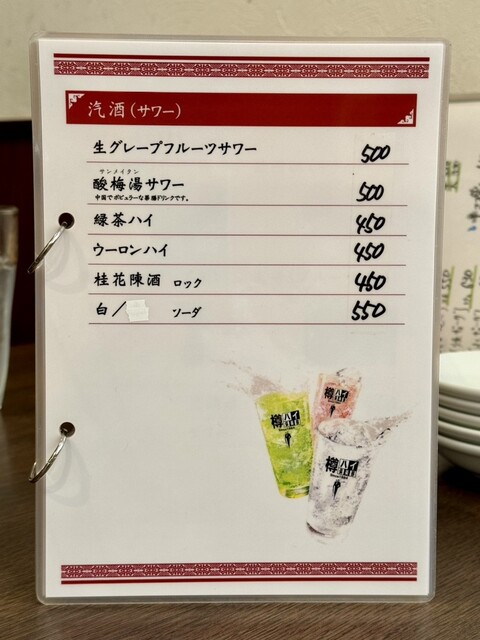 汽酒(サワー)
生グレープフルーツサワー 500
サンメイタン
酸梅湯サワー 500
中国でポピュラーな薬膳ドリンクです。
緑茶ハイ 450
ウーロンハイ 450
桂花陳酒 ロック 450
白/ ソーダ 550
樽ハイ
樽ハイ
樽ハイ